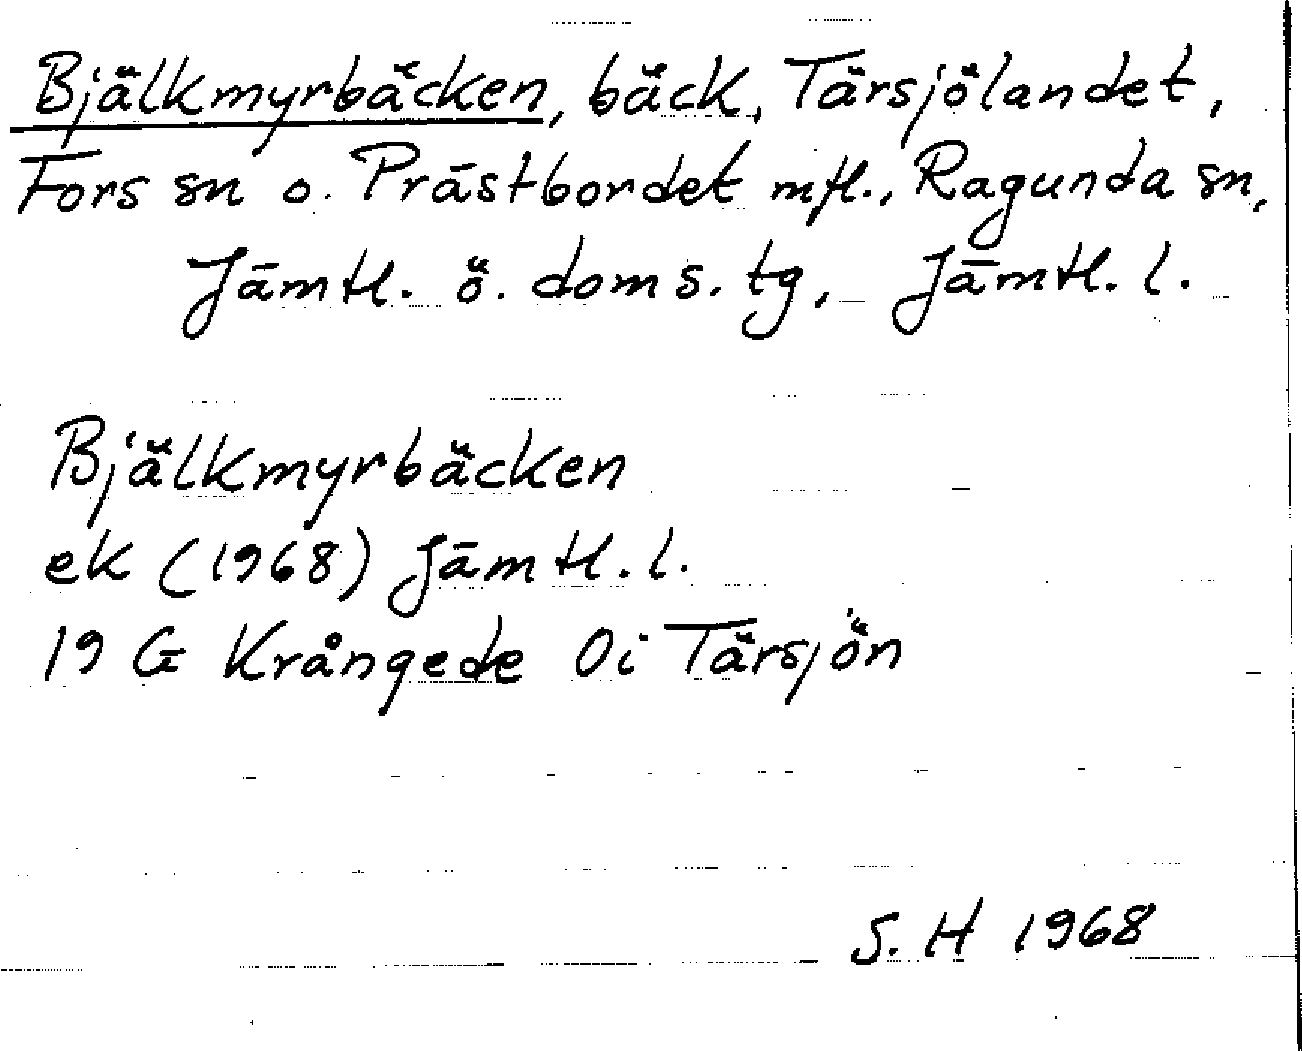 Bjälkmyrbäcken, bäck, Tärsjölandet,
Fors sn o. Prästbordet mfl., Ragunda sn,
Jämtl. ö. doms. tg, Jämtl. l.
Bjälkmyrbäcken
ek (1968) Jämtl. l.
19 G Krångede 0i Tärsjön
S. H 1968